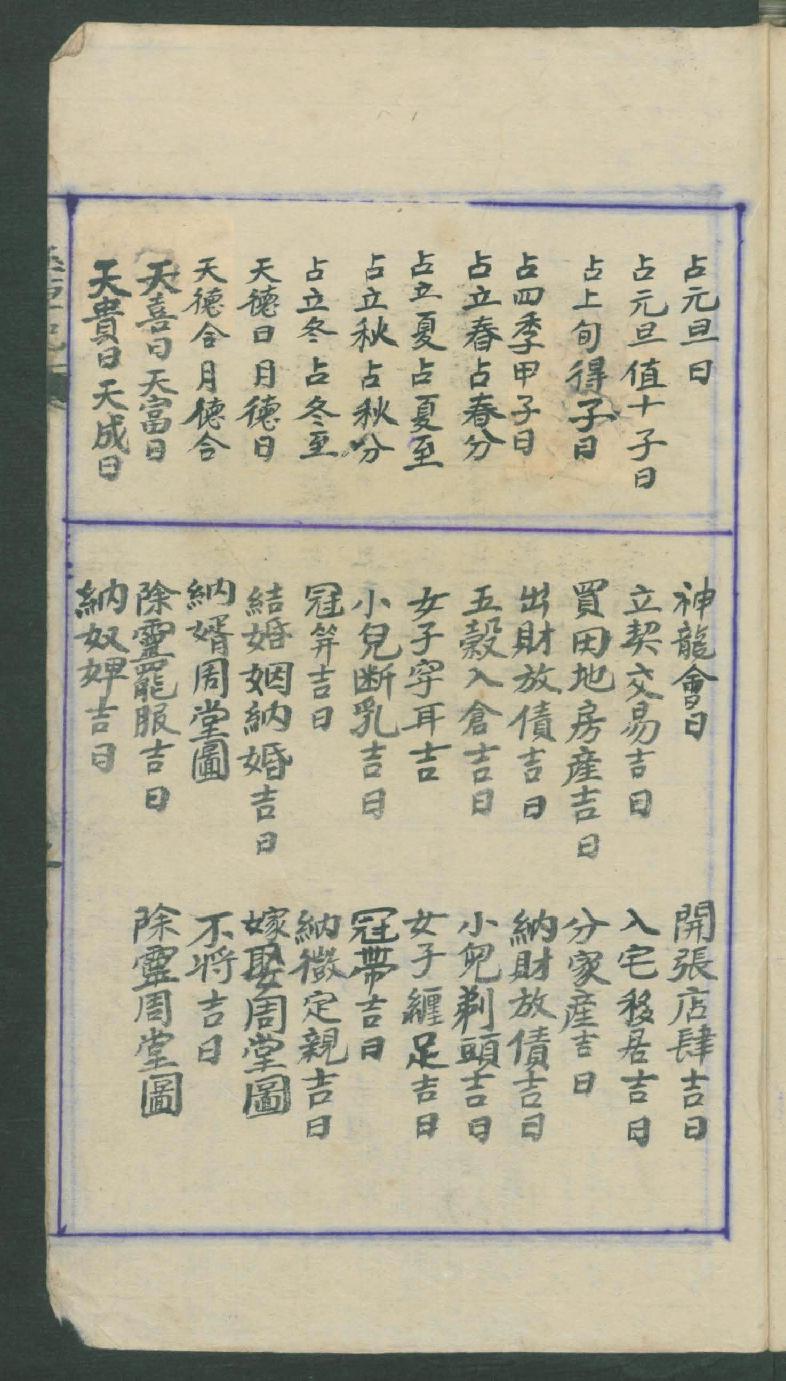 占元旦日
占元旦值十子日
占上旬得子日
占四季甲子日
占立春占春分
占立夏占夏至
占立秋占秋分
占立冬占冬至
天德日月德日
天德合月德合
天喜日天富日
天貴日天成日
神龍會日
開張店肆吉日
立契交易吉日
入宅移居吉日
買田地房產吉日
分家產吉日
出財放債吉日
納財放債吉日
五穀入倉吉日
小兒剃頭吉日
女子穿耳吉
女子纏足吉日
小兒断乳吉日
冠帶吉日
冠笄吉日
納徵定親吉日
結婚姻納婚吉日
嫁娶周堂圖
納婿周堂圖
不將吉日
除靈罷服吉日
除靈周堂圖
納奴婢吉日